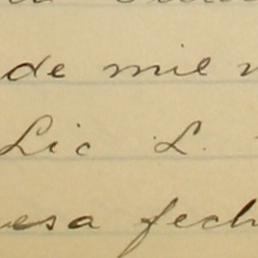 de mil
Lic L.
esa fech